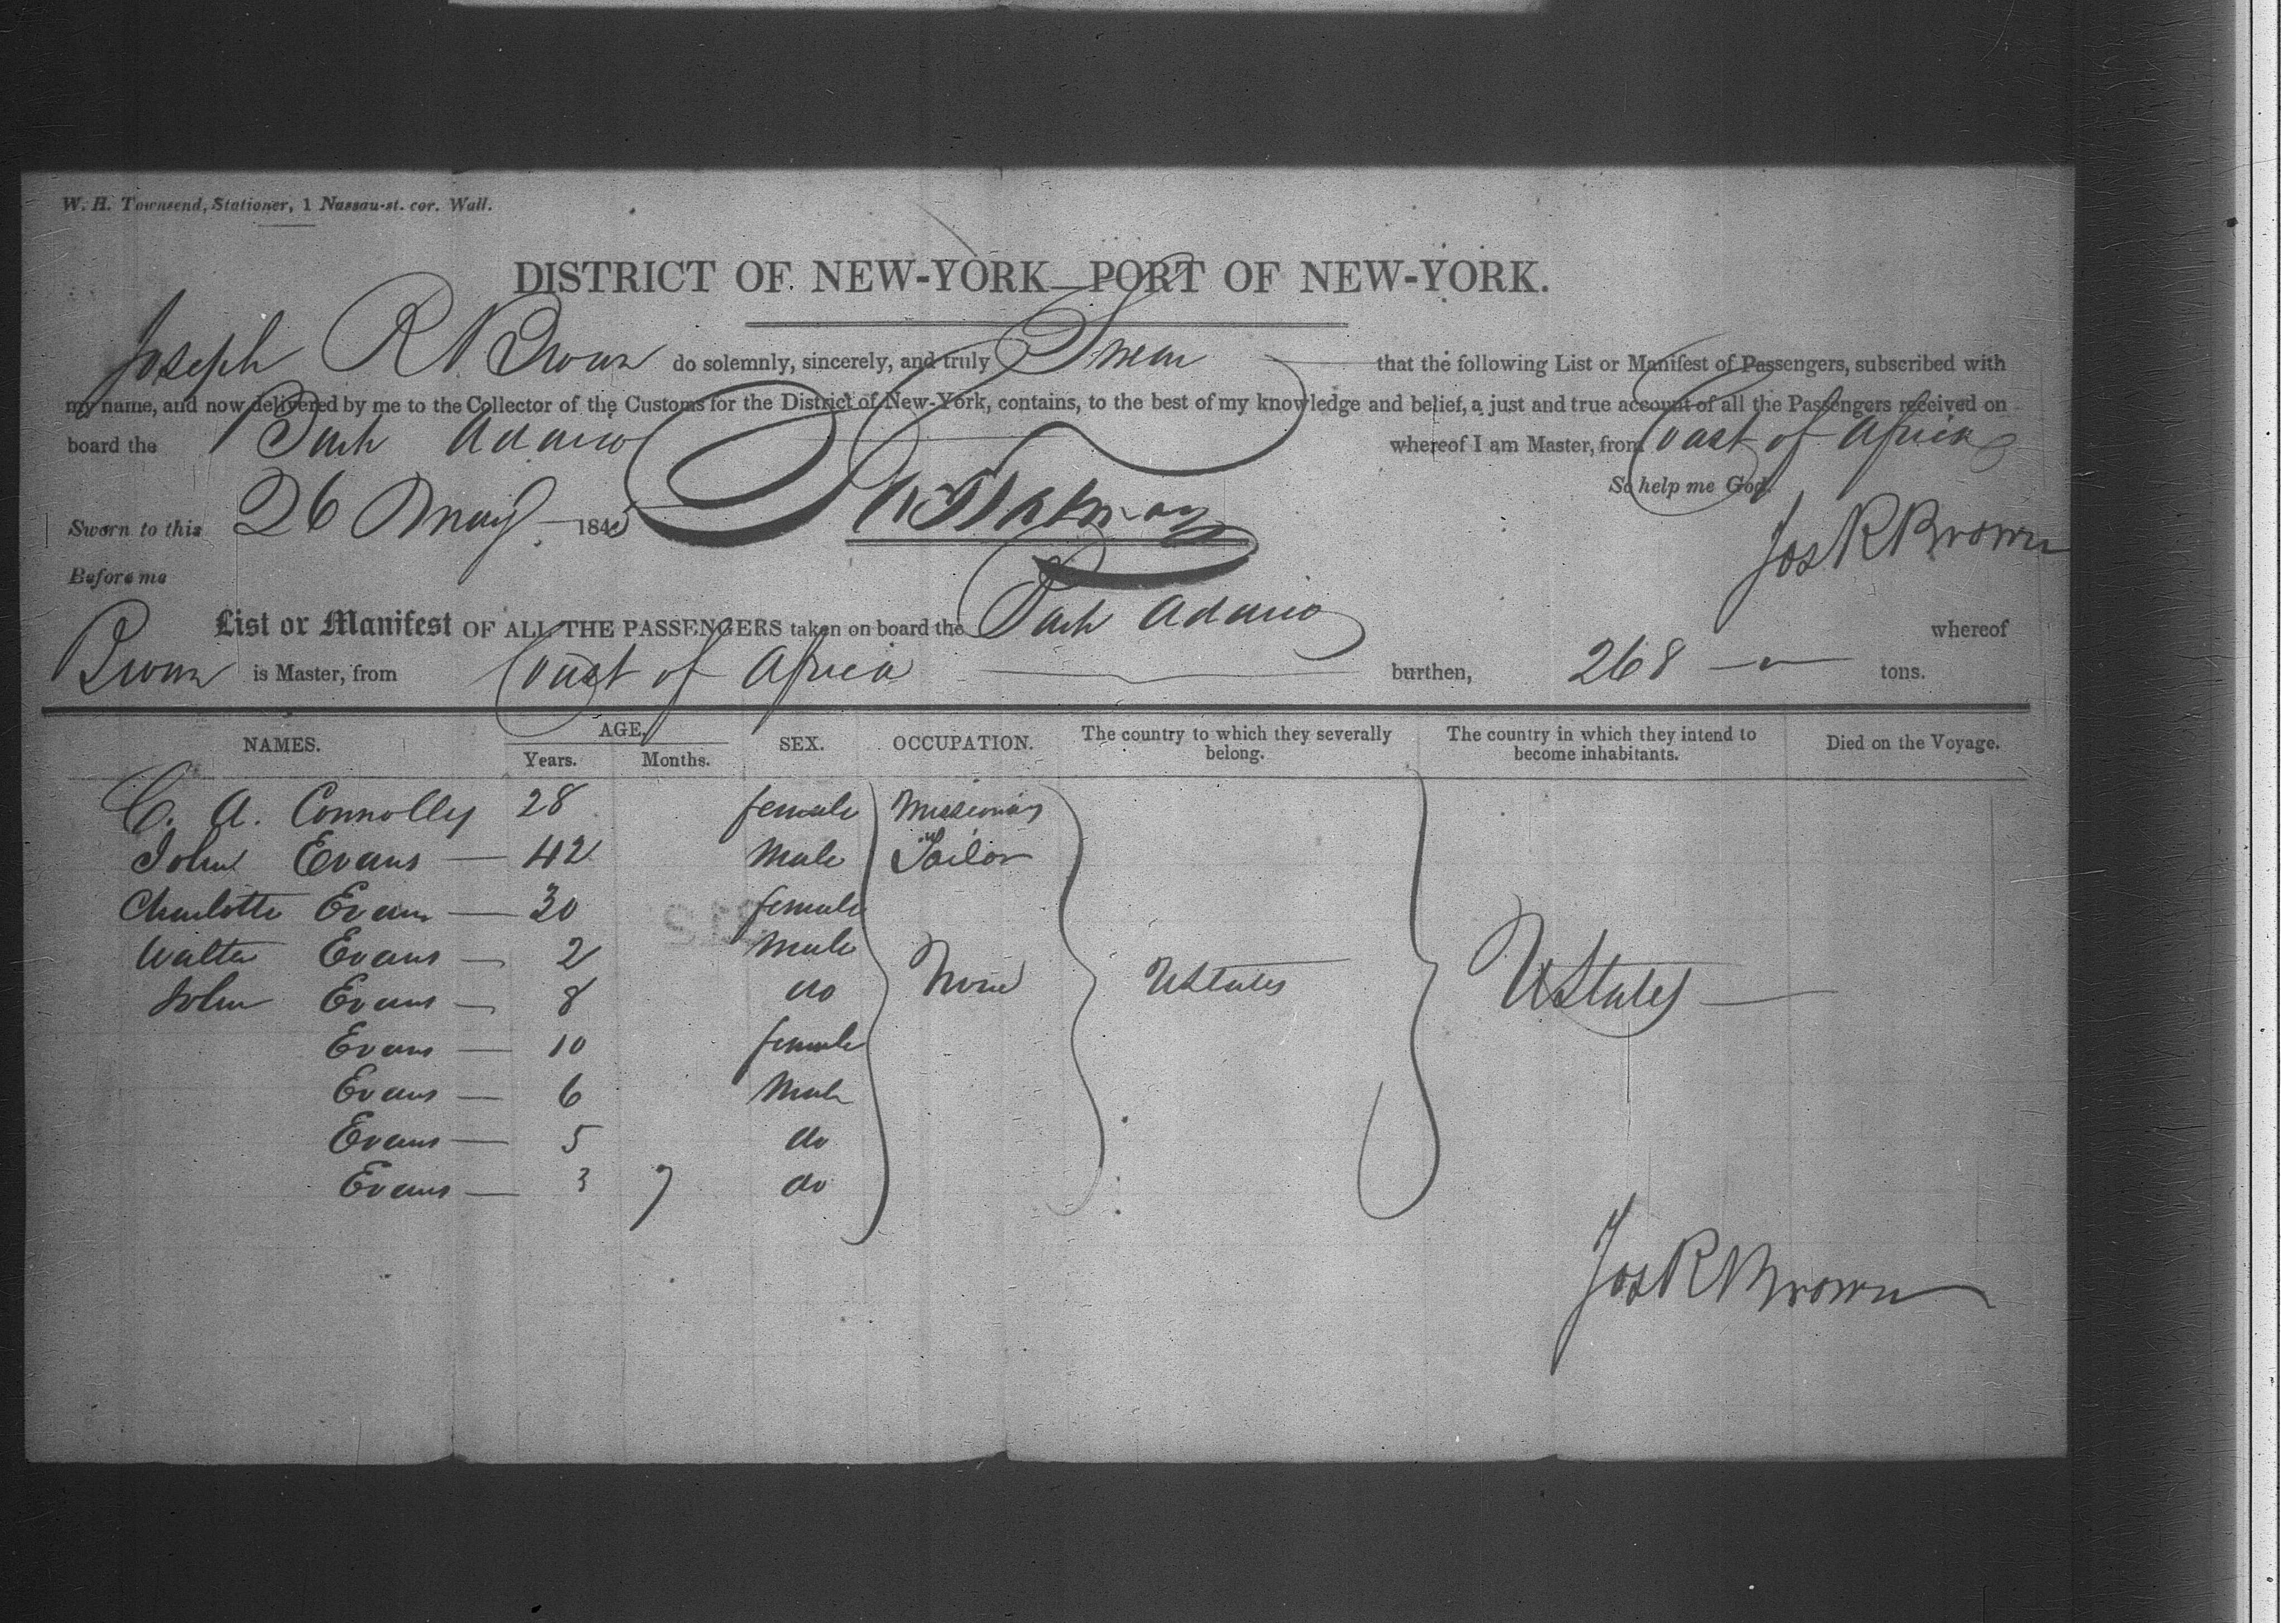 W. H. Townsend, Stationer, 1 Nassau-st. cor. Wall.
DISTRICT OF NEW-YORK—PORT OF NEW-YORK.
Joseph R Brown do solemnly, sincerely, and truly Swear that the following List or Manifest of Passengers, subscribed with
my name, and now delivered by me to the Collector of the Customs for the District of New-York, contains, to the best of my knowledge and belief, a just and true account of all the Passengers received on
board the Bark Adario whereof I am Master, from Coast of Africa
So help me God.
Sworn to this 26 May 184
Jos R Brown
Before me
List or Manifest OF ALL THE PASSENGERS taken on board the Bark Adario whereof
Brown is Master, from Coast of Africa burthen, 268 tons.
NAMES. AGE, Years. Months. SEX. OCCUPATION. The country to which they severally belong. The country in which they intend to become inhabitants. Died on the Voyage.
C. A. Connolly 28 female Missionary
John Evans — 42 Male Tailor
Charlotte Evans — 30 female
Walter Evans — 2 Male
John Evans — 8 do None UStates UStates —
Evans — 10 female
Evans — 6 Male
Evans — 5 do
Evans — 3 7 do
Jos R Brown